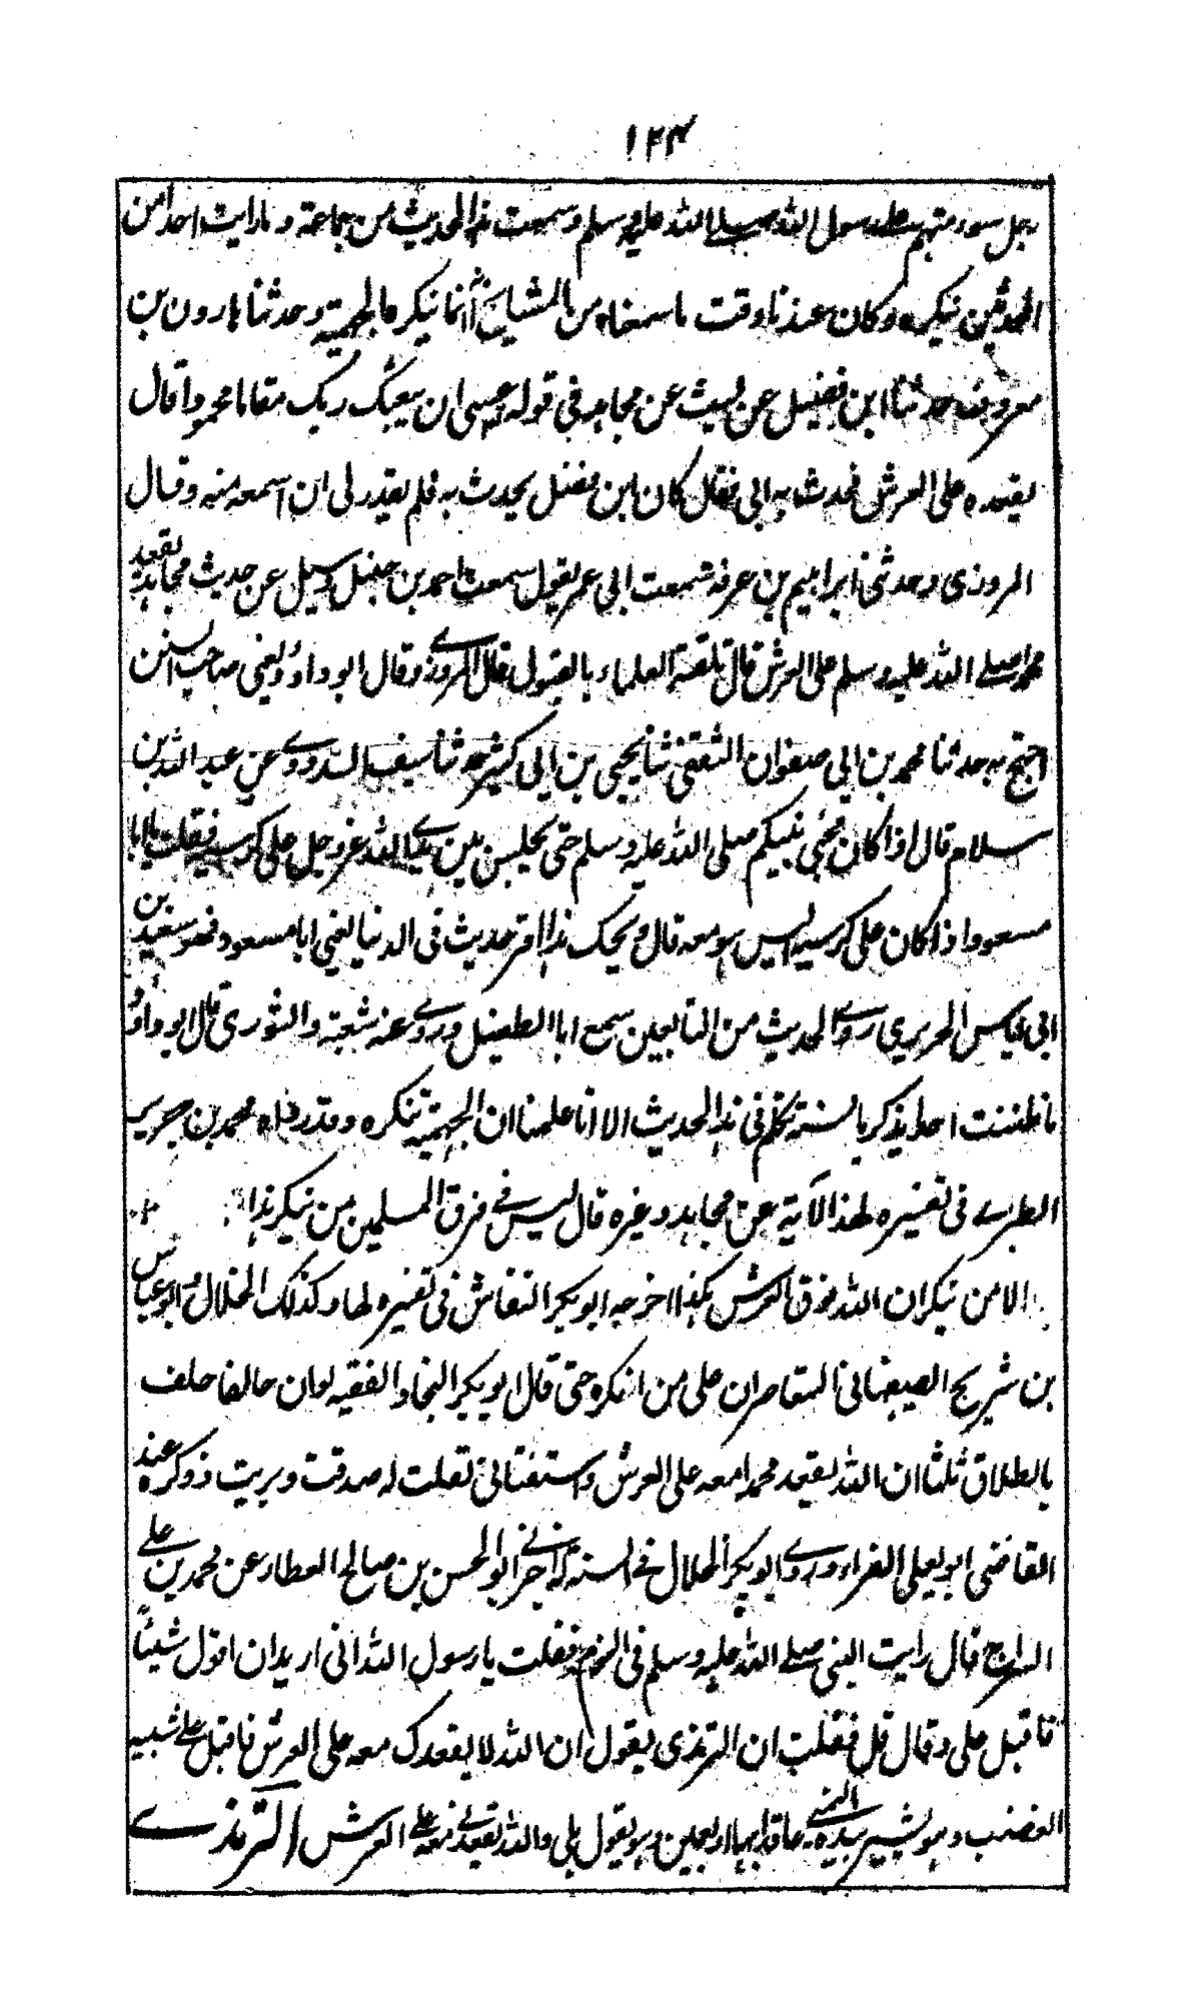 ۱۲۴
رجل سوء متهم على رسول الله صلے الله عليه وسلم وسمعت هذا الحديث من جماعة وما رايت احدا من
المحدثين ينكره وكان عندنا وقت ما سمعناه من المشايخ انما ينكره الجهمية وحدثنا هارون بن
معروف حدثنا ابن فضيل عن ليث عن مجاهد فى قوله عسى ان يبعثك ربك مقاما محمودا قال
يقعده على العرش فحدثت به ابى فقال كان ابن فضيل يحدث به فلم يقدر لى ان اسمعه منه وقال
المروزى وحدثنى ابراهيم بن عرفة سمعت ابى عمير يقول سمعت احمد بن حنبل وسئل عن حديث مجاهد يقعد
محمدا صلے الله عليه وسلم على العرش قال تلقته العلماء بالقبول قال المروزے وقال ابو داؤد يعنى صاحب السنن
احتج به حدثنا محمد بن ابى صفوان الثقفى ثنا يحيى بن ابى كثير حدثنا سيف السدوسے عن عبد الله بن
سلام قال اذا كان مجئ نبيكم صلى الله عليه وسلم حتى يجلس بين يدے الله عزوجل على كرسيه فقلت يا ابا
مسعود اذا كان على كرسيه اليس هو معه قال ويحك هذا اقر حديث فى الدنيا لعينى ابا مسعود فهو سعيد بن
ابى اياس الجريرى روے الحديث من التابعين سمع ابا الطفيل وروے عنه شعبة والثورى قال ابو داؤد
ما ظننت احدا يذكر بالسنة تكلم فى هذا الحديث الا انا علمنا ان الجهمية تنكره وقد رواه محمد بن جرير
الطبرے فى تفسيره لهذ الآية عن مجاهد وغيره قال ليس فے فرق المسلمين من ينكر هذا
الا من ينكر ان الله فوق العرش هكذا اخرجه ابو بكر النقاش فى تفسيره لها وكذلك الخلال وابو عباس
بن شريح الصبغانى القاصران على من انكره حتى قال ابو بكر النجاد الفقيه لو ان حالفا حلف
بالطلاق ثلثا ان الله يقعد محمدا معه على العرش واستفتانى لقلت له صدقت وبريت ذوكره عند
القاضى ابو يعلى الفراء وروے ابو بكر الخلال فے السنة له اخبرنے ابو الحسن بن صالح العطار عن محمد بن علے
السراج قال رايت النبى صلے الله عليه وسلم فى النوم فقلت يا رسول الله انى اريد ان اقول شيئاً
فاقبل على وقال قل فقلت ان الترمذى يقول ان الله لا يقعدك معه على العرش فاقبل علے شبيه
الغضب وهو يشير بيده اليمنے عاقدا بها اربعين وهو يقول بلى والله يقعدنے معه علے العرش الترمذے